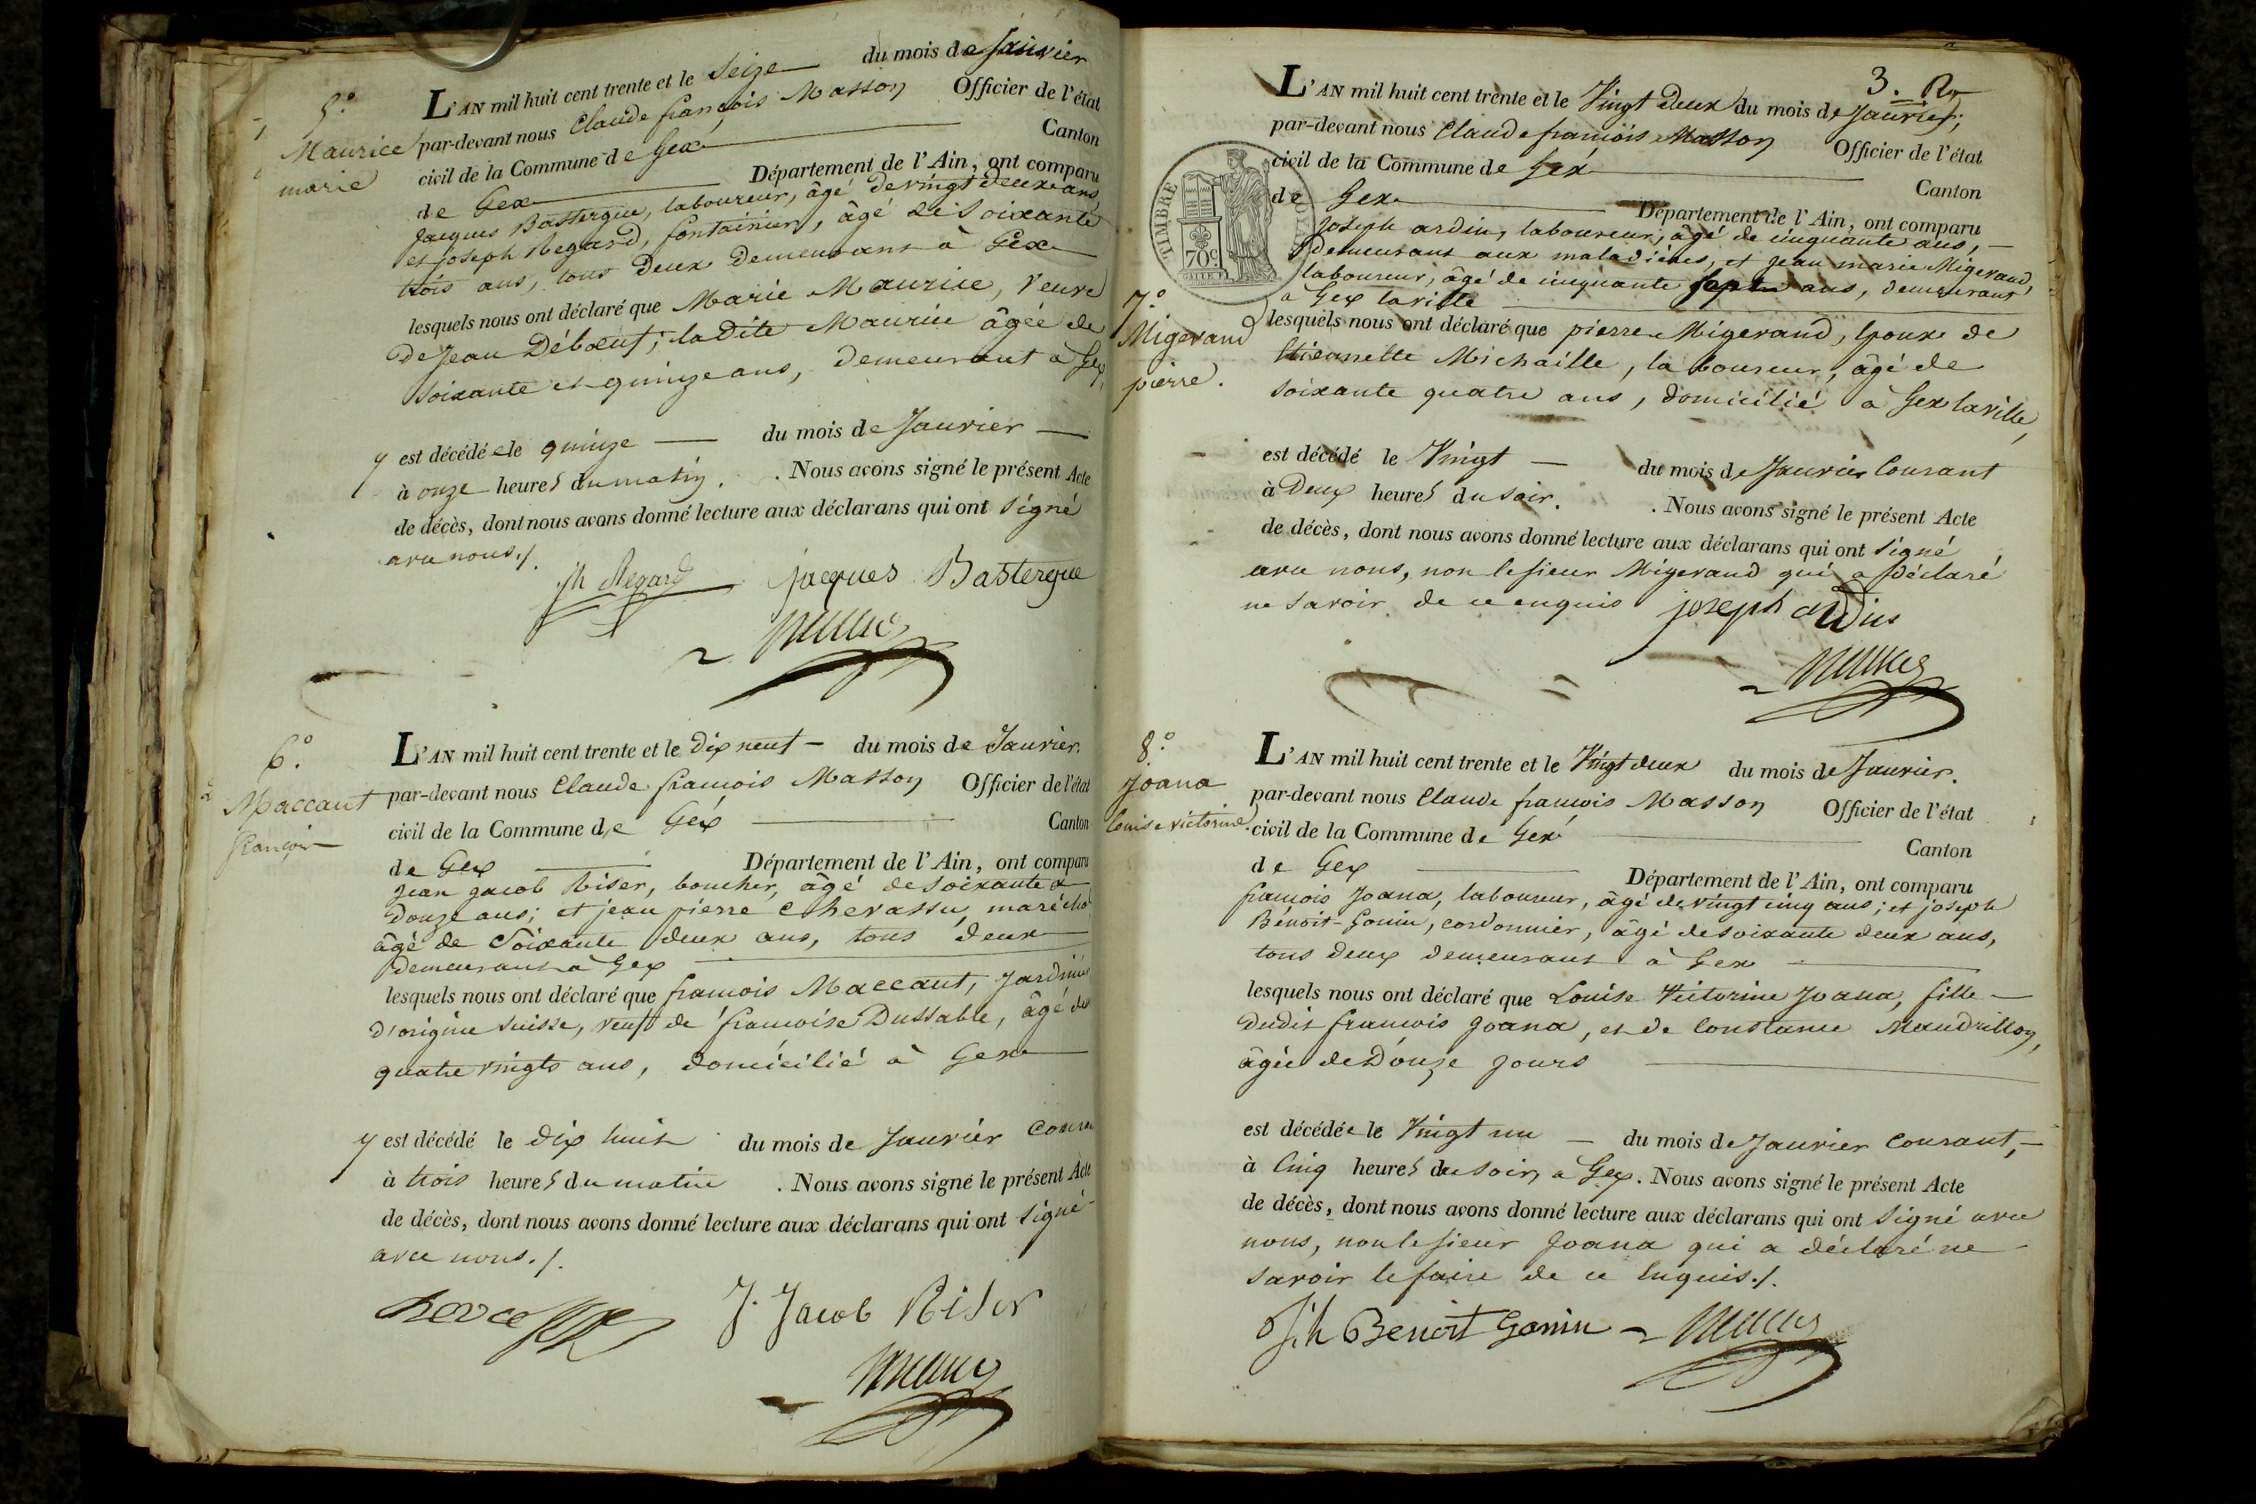 5.°
Maurice
marie
L'AN mil huit cent trente et le Seize du mois de Janvier
par-devant nous Claude françois Masson Officier de l'état
civil de la Commune de Gex Canton
de Gex Département de l'Ain, ont comparu
Jacques Bastergue, laboureur, âgé de vingt deux ans,
et Joseph Regard, fontainier, âgé de Soixante
trois ans, tous deux demeurant à Gex
lesquels nous ont déclaré que Marie Maurice, Veuve
de Jean Débœuf; la dite Maurice âgée de
soixante et quinze ans, demeurant à Gex,
y est décédée le quinze du mois de Janvier
à onze heures du matin. . Nous avons signé le présent Acte
de décès, dont nous avons donné lecture aux déclarans qui ont signé
avec nous./.
Jh Regard jacques Bastergue
6.°
Maccaut
François
L'AN mil huit cent trente et le dix neuf du mois de Janvier.
par-devant nous Claude françois Masson Officier de l'état
civil de la Commune de Gex Canton
de Gex Département de l'Ain, ont comparu
Jean Jacob Riser, boucher, âgé de soixante &
douze ans; et jean pierre Chevassu, maréchal
âgé de Soixante deux ans, tous deux
demeurant à Gex
lesquels nous ont déclaré que françois Maccaut, Jardinier
d'origine suisse, veuf de françoise Dussable, âgé de
quatre vingts ans, domicilié à Gex
y est décédé le dix huit du mois de Janvier Couran
à trois heures du matin . Nous avons signé le présent Acte
de décès, dont nous avons donné lecture aux déclarans qui ont signé
avec nous./.
J. Jacob Riser
3. Ro
TIMBRE ROYAL
70c
L'AN mil huit cent trente et le Vingt deux du mois de Janvier;
par-devant nous Claude francois Masson Officier de l'état
civil de la Commune de Gex Canton
de Gex Département de l'Ain, ont comparu
Joseph ardin, laboureur, âgé de cinquante ans,
demeurant aux maladières, et Jean marie Migerand,
laboureur, âgé de cinquante sept ans, demeurant
à Gex la ville
7.°
Migerand
pierre.
lesquels nous ont déclaré que pierre Migerand, Epoux de
Etiennette Michaille, laboureur, âgé de
soixante quatre ans, domicilié à Gex la ville,
est décédé le Vingt du mois de Janvier Courant
à Deux heures du soir. . Nous avons signé le présent Acte
de décès, dont nous avons donné lecture aux déclarans qui ont signé
avec nous, non le sieur Migerand qui a déclaré
ne savoir de ce enquis joseph ardin
8.°
Joana
Louise victorine.
L'AN mil huit cent trente et le Vingt deux du mois de Janvier.
par-devant nous Claude françois Masson Officier de l'état
civil de la Commune de Gex Canton
de Gex Département de l'Ain, ont comparu
françois Joana, laboureur, âgé de vingt cinq ans; et joseph
Bénoit-Gonin, cordonnier, âgé de soixante deux ans,
tous deux demeurant à Gex
lesquels nous ont déclaré que Louise Victorine Joana, fille
dudit françois Joana, et de Constance Maudrillon,
âgée de Douze jours
est décédée le Vingt un du mois de Janvier Courant,
à Cinq heures du soir, à Gex. Nous avons signé le présent Acte
de décès, dont nous avons donné lecture aux déclarans qui ont signé avec
nous, non le sieur Joana qui a déclaré ne
savoir le faire de ce Enquis./.
Jh Benoit Gonin